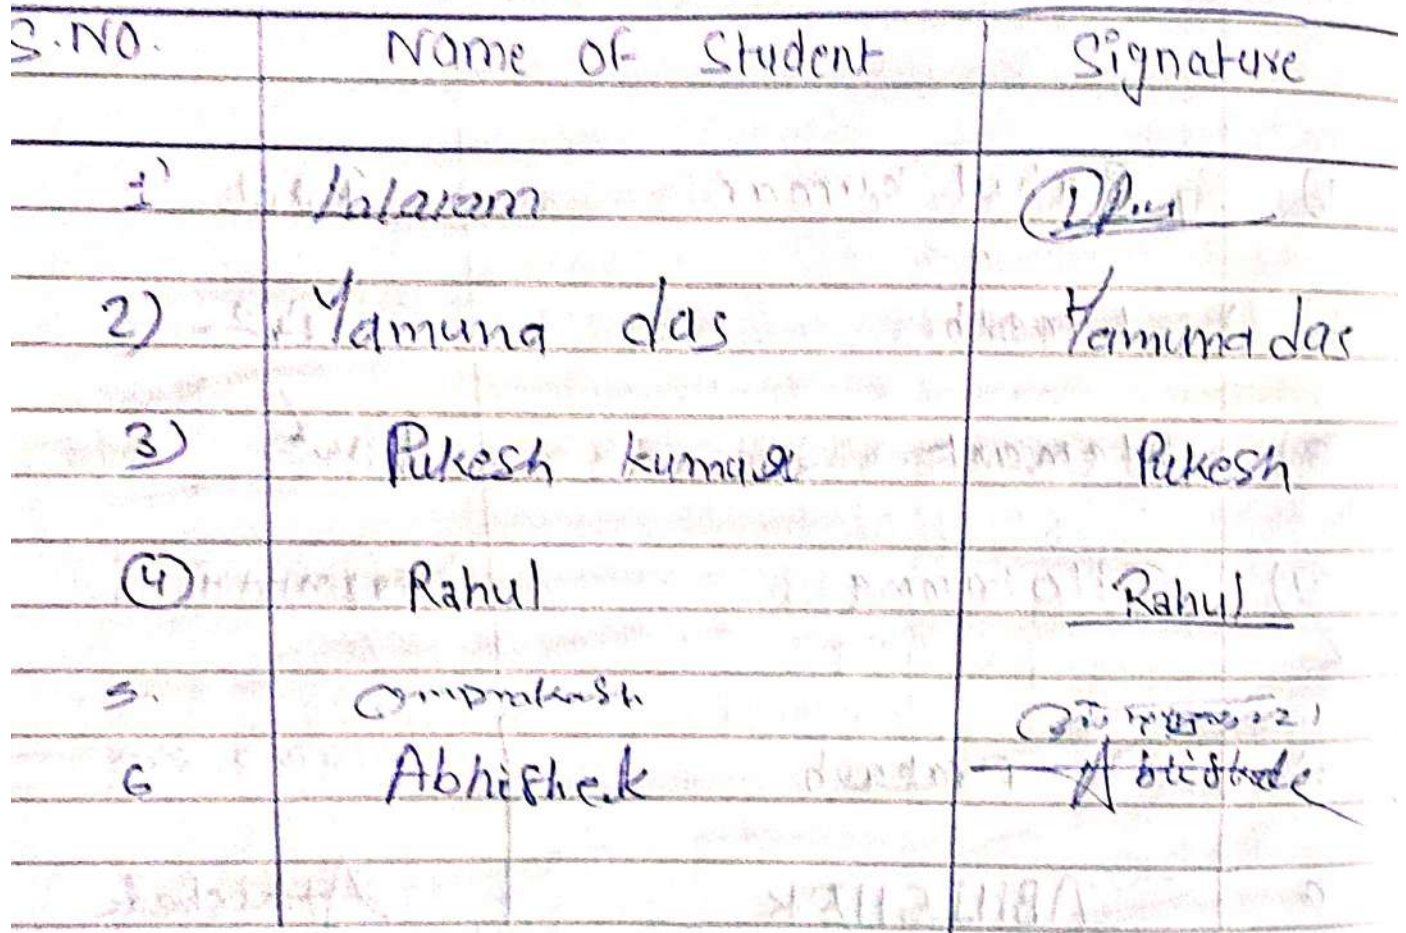 S.NO. Name of Student Signature
1) Lalaram
2) Yamuna das Yamuna das
3) Pukesh kumar Pukesh
4 Rahul Rahul
5. Omprakash
6 Abhishek Abhishek